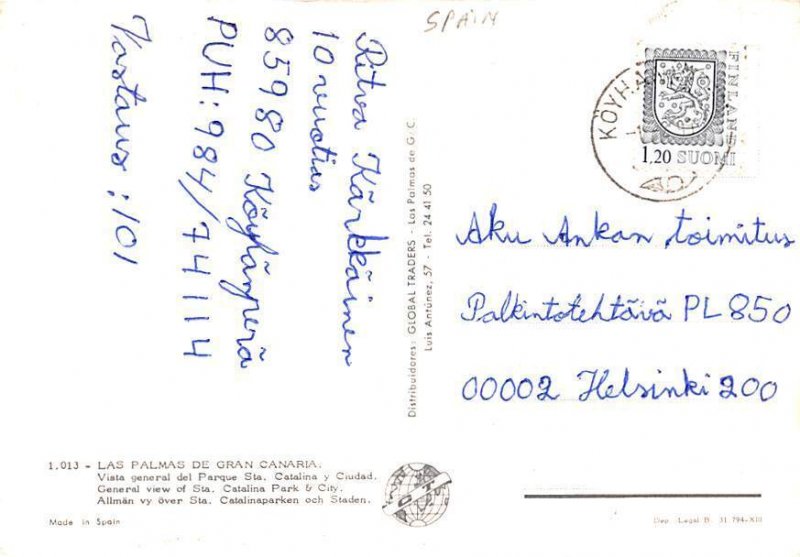 SPAIN
Ritva Kärkkäinen
10 vuotias
85980 Köyhänperä
PUH: 984/741114
Vastaus: 101
Distribuidores: GLOBAL TRADERS - Las Palmas de G. C.
Luis Antúnez, 57 - Tel. 24 41 50
FINLAND
1,20 SUOMI
Aku Ankan toimitus
Palkintotehtävä PL 850
00002 Helsinki 200
1.013 - LAS PALMAS DE GRAN CANARIA.
Vista general del Parque Sta. Catalina y Ciudad.
General view of Sta. Catalina Park & City.
Allmän vy över Sta. Catalinaparken och Staden.
Made in Spain
Dep. Legal B. 31.794-XIII